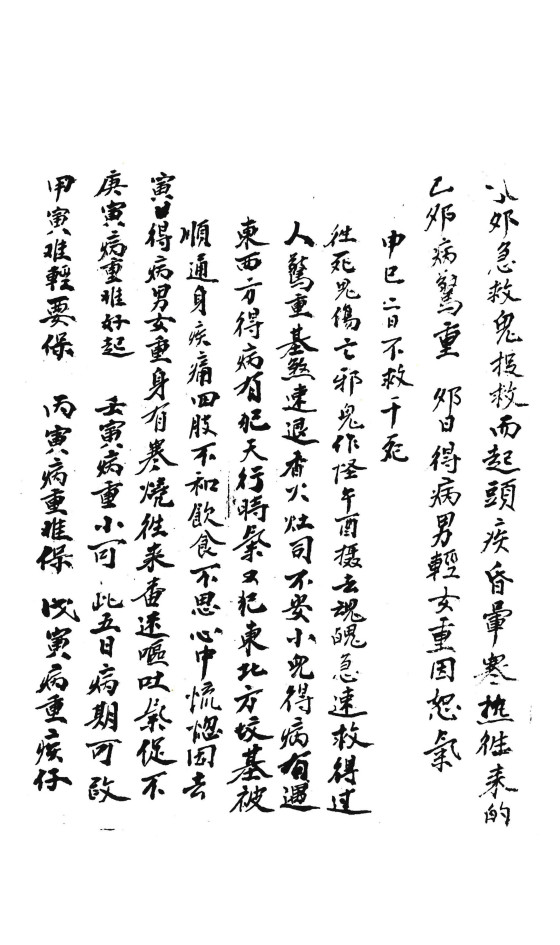 甲寅难輕要保 丙寅病重难保 戊寅病重疾仔
庚寅病重难好起 壬寅病重小可 此五日病期可改
寅日得病男女重身有寒燒往来香迷嘔吐氣促不
順通身疾痛四肢不和飲食不思心中慌惚因去
東西方得病有犯天行時氣又犯東北方坟基被
人驚重基煞速退香火灶司不安小児得病有遇
往死鬼傷亡邪鬼作怪午酉摄去魂魄急速救得过
申巳二日不救干死
己卯病驚重 卯日得病男輕女重因怒氣
卯急救鬼投救而起頭疾昏暈寒热往来的